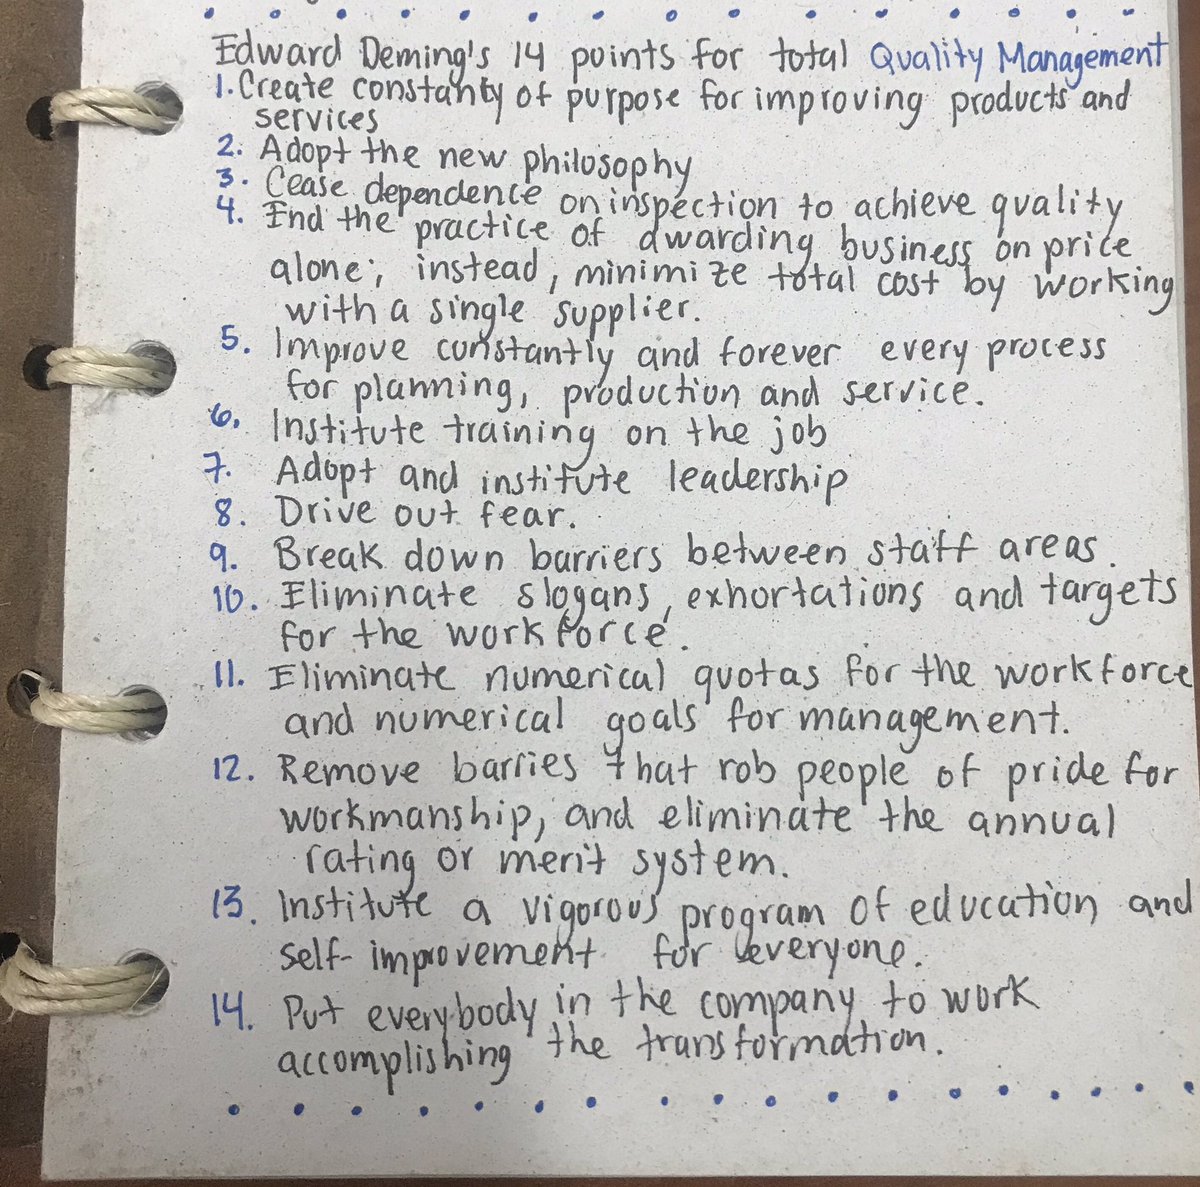 Edward Deming's 14 points for total Quality Management
1. Create constanty of purpose for improving products and
services
2. Adopt the new philosophy
3. Cease dependence on inspection to achieve quality
4. End the practice of awarding business on price
alone; instead, minimize total cost by working
with a single supplier.
5. Improve constantly and forever every process
for planning, production and service.
6. Institute training on the job
7. Adopt and institute leadership
8. Drive out fear.
9. Break down barriers between staff areas.
10. Eliminate slogans, exhortations and targets
for the workforce.
11. Eliminate numerical quotas for the workforce
and numerical goals for management.
12. Remove barries that rob people of pride for
workmanship, and eliminate the annual
rating or merit system.
13. Institute a vigorous program of education and
self-improvement for everyone.
14. Put everybody in the company to work
accomplishing the transformation.